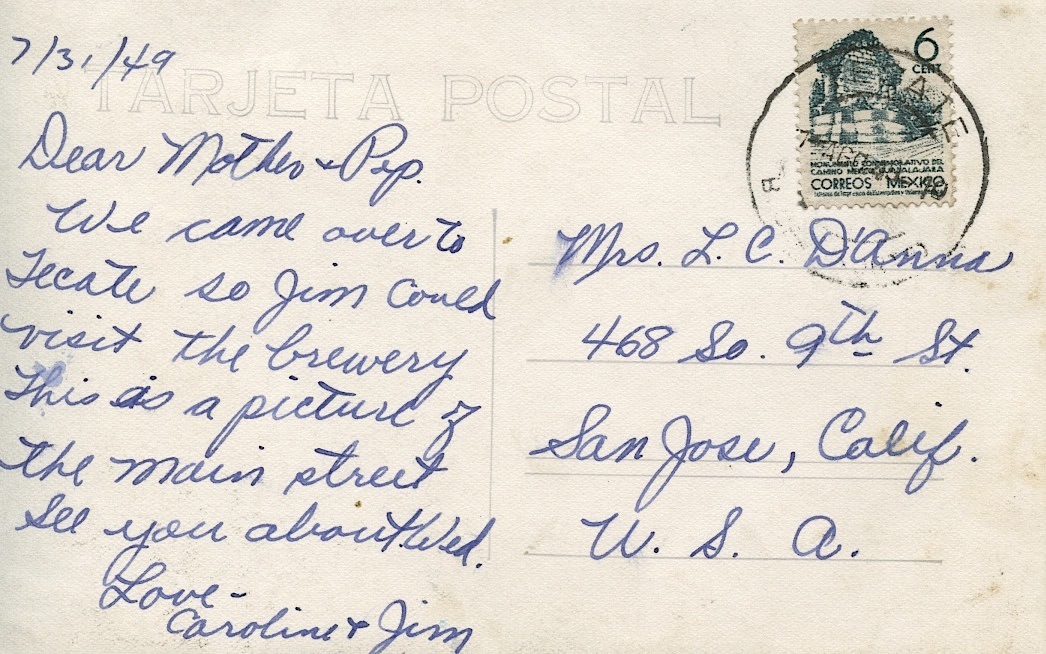 7/31/49
TARJETA POSTAL
Dear Mother + Pop.
We came over to
Tecate so Jim could
visit the brewery
This is a picture of
the main street
See you about Wed.
Love-
Caroline + Jim
6
CENT
MONUMENTO CONMEMORATIVO DEL
CAMINO MEXICO GUADALAJARA
CORREOS MEXICO
Mrs. L. C. D'Anna
468 So. 9th St.
San Jose, Calif.
U. S. A.